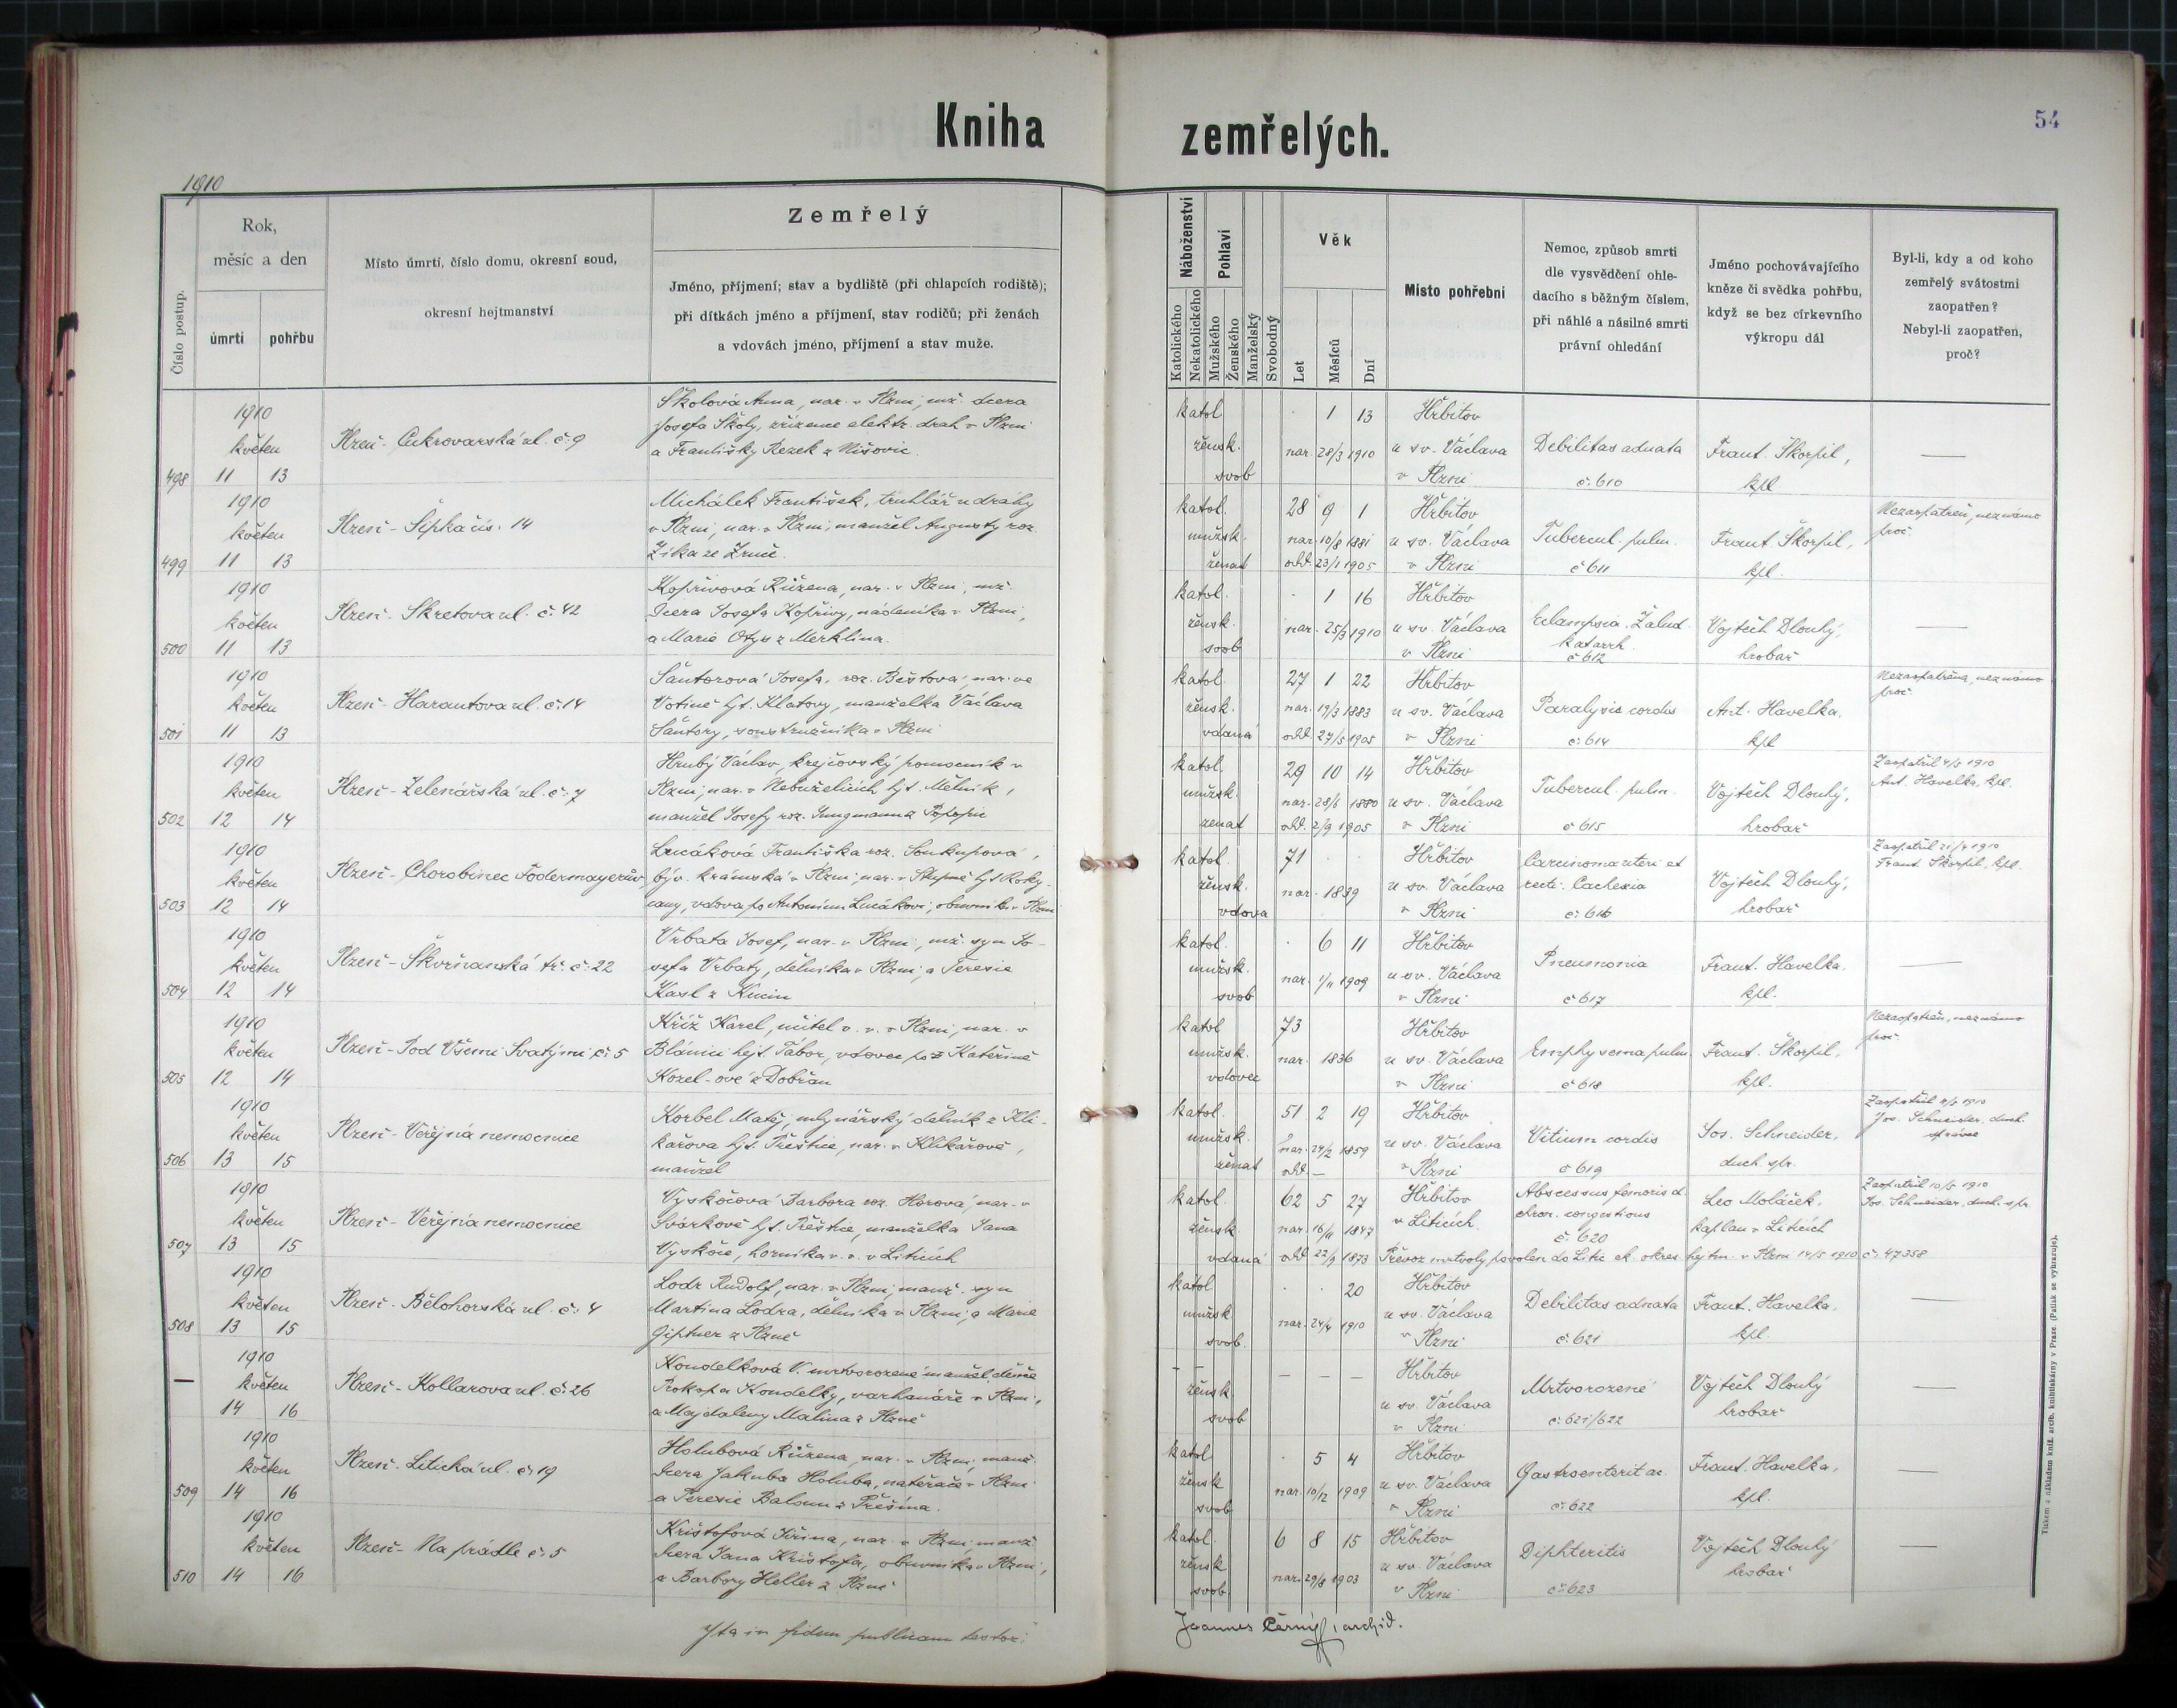 Kniha zemřelých.
54
1910
Číslo postup.
Rok, měsíc a den
úmrtí
pohřbu
Místo úmrtí, číslo domu, okresní soud,
okresní hejtmanství
Zemřelý
Jméno, příjmení; stav a bydliště (při chlapcích rodiště);
při dítkách jméno a příjmení, stav rodičů; při ženách
a vdovách jméno, příjmení a stav muže.
Náboženství
Katolického
Nekatolického
Pohlaví
Mužského
Ženského
Manželský
Svobodný
Věk
Let
Měsíců
Dní
Místo pohřební
Nemoc, způsob smrti
dle vysvědčení ohle-
dacího s běžným číslem,
při náhlé a násilné smrti
právní ohledání
Jméno pochovávajícího
kněze či svědka pohřbu,
když se bez církevního
výkropu dál
Byl-li, kdy a od koho
zemřelý svátostmi
zaopatřen?
Nebyl-li zaopatřen,
proč?
498
1910
květen
11 13
Plzeň - Cukrovarská ul. č. 9
Školová Anna, nar. v Plzni, mž. dcera
Josefa Školy, zřízence elektr. drah v Plzni
a Františky Rezek z Nišovic.
katol
žensk.
svob
1 13
nar. 28/3 1910
Hřbitov
u sv. Václava
v Plzni
Debilitas adnata
č. 610
Frant. Škorpil,
kpl.
—
499
1910
květen
11 13
Plzeň - Šipka čís. 14
Michálek František, truhlář u dráhy
v Plzni, nar. v Plzni, manžel Augusty roz.
Zika ze Zruče.
katol.
mužsk.
ženat
28 9 1
nar. 10/8 1881
odd. 23/1 1905
Hřbitov
u sv. Václava
v Plzni
Tubercul. pulm.
č 611
Frant. Škorpil,
kpl.
Nezaopatřen, neznámo
proč.
500
1910
květen
11 13
Plzeň - Skretova ul. č. 42
Kopřivová Růžena, nar. v Plzni, mž.
dcera Josefa Kopřivy, nádeníka v Plzni,
a Marie Otys z Merklína.
katol.
žensk.
svob
1 16
nar. 25/3 1910
Hřbitov
u sv. Václava
v Plzni
Eclampsia. Žalud.
katarrh.
č 612
Vojtěch Dlouhý,
hrobař
—
501
1910
květen
11 13
Plzeň - Harantova ul. č. 14
Šantorová Josefa, roz. Beštová, nar. ve
Votíně hjt. Klatovy, manželka Václava
Šantory, soustružníka v Plzni
katol.
žensk.
vdaná
27 1 22
nar. 19/3 1883
odd. 27/5 1905
Hřbitov
u sv. Václava
v Plzni
Paralysis cordis
č. 614
Ant. Havelka.
kpl
Nezaopatřena, neznámo
proč
502
1910
květen
12 14
Plzeň - Zelenářská ul. č. 7
Hrubý Václav, krejčovský pomocník v
Plzni, nar. v Nebuželích hjt. Mělník,
manžel Josefy roz. Jungmann z
katol.
mužsk.
ženat
29 10 14
nar. 28/6 1880
odd. 2/9 1905
Hřbitov
u sv. Václava
v Plzni
Tubercul. pulm.
č 615
Vojtěch Dlouhý,
hrobař
Zaopatřil 4/5 1910
Ant. Havelka, kpl.
503
1910
květen
12 14
Plzeň - Chorobinec Födermayerův
Lucáková Františka roz. Soukupová,
býv. krámská v Plzni, nar. v Stupně hjt Roky-
cany, vdova po Antonínu Lucákovi, obuvníku v Plzni
katol.
žensk.
vdova
71
nar. 1839
Hřbitov
u sv. Václava
v Plzni
Carcinoma uteri et
recti. Cachexia
č. 616
Vojtěch Dlouhý,
hrobař
Zaopatřil 21/4 1910
Frant. Škorpil, kpl.
504
1910
květen
12 14
Plzeň - Škvrňanská tř. č. 22
Vrbata Josef, nar. v Plzni, mž. syn Jo-
sefa Vrbaty, dělníka v Plzni, a Terezie
Karl z
katol.
mužsk.
svob
6 11
nar. 1/11 1909
Hřbitov
u sv. Václava
v Plzni
Pneumonia
č 617
Frant. Havelka.
kpl.
—
505
1910
květen
12 14
Plzeň - Pod Všemi Svatými č. 5
Kříž Karel, učitel v. v. v Plzni, nar. v
Blánici hejt. Tábor, vdovec po Kateřině
Kozel-ové z Dobřan
katol
mužsk.
vdovec
73
nar. 1836
Hřbitov
u sv. Václava
v Plzni
Emphysema pulm.
č 618
Frant. Škorpil,
kpl.
Nezaopatřen, neznámo
proč.
506
1910
květen
13 15
Plzeň - Veřejná nemocnice
Korbel Matěj, mlynářský dělník z Kli-
kařova hjt. Přeštice, nar. v Klikařově,
manžel
katol.
mužsk.
ženat
51 2 19
nar. 24/2 1859
odd. —
Hřbitov
u sv. Václava
v Plzni
Vitium cordis
č 619
Jos. Schneider,
duch. spr.
Jos. Schneider, duch.
správce
507
1910
květen
13 15
Plzeň - Veřejná nemocnice
Vyskočová Barbora roz. Horová, nar. v
Svárkově hjt. Přeštice, manželka Jana
Vyskoče, horníka v. v. v Liticích
katol.
žensk.
vdaná
62 5 27
nar. 16/11 1847
odd 22/9 1873
Hřbitov
v Liticích.
Abscessus femoris d.
chron. congestivus
č. 620
Leo Moláček,
kaplan v Liticích
Zaopatřil 10/5 1910
Jos. Schneider, duch. spr.
Převoz mrtvoly povolen do Litic ck. okres. hejtm. v Plzni 14/5 1910 č. 47358
508
1910
květen
13 15
Plzeň - Bělohorská ul. č. 4
Lodr Rudolf, nar. v Plzni, manž. syn
Martina Lodra, dělníka v Plzni, a Marie
Giptner z Plzně
katol.
mužsk
svob.
20
nar. 24/4 1910
Hřbitov
u sv. Václava
v Plzni
Debilitas adnata
č. 621
Frant. Havelka.
kpl.
—
—
1910
květen
14 16
Plzeň - Kollarova ul. č. 26
Kondelková N. mrtvorozené manžel. děvče
Prokopa Kondelky, varhanáře v Plzni,
a Majdaleny Malina z Plzně
— —
žensk.
svob
— — —
Hřbitov
u sv. Václava
v Plzni
Mrtvorozené
č. 621/622
Vojtěch Dlouhý
hrobař
—
509
1910
květen
14 16
Plzeň - Litická ul. č 19
Holubová Růžena, nar. v Plzni, manž.
dcera Jakuba Holuba, natěrače v Plzni
a Terezie Baloun z Přešína.
katol
žensk
svob
5 4
nar. 10/12 1909
Hřbitov
u sv. Václava
v Plzni
Gastroenterit ac.
č. 622
Frant. Havelka,
kpl.
—
510
1910
květen
14 16
Plzeň - Na prádle č. 5
Krištofová Jiřina, nar. v Plzni, manž
dcera Jana Krištofa, obuvníka v Plzni,
a Barbory Heller z Plzně
katol.
žensk
svob.
6 8 15
nar. 29/8 1903
Hřbitov
u sv. Václava
v Plzni
Diphteritis
č. 623
Vojtěch Dlouhý
hrobař
—
Ita in fidem publicam testor:
Joannes Černý, archid.
Tiskem a nákladem kníž. arcib. knihtiskárny v Praze. (Patisk se vyhrazuje).